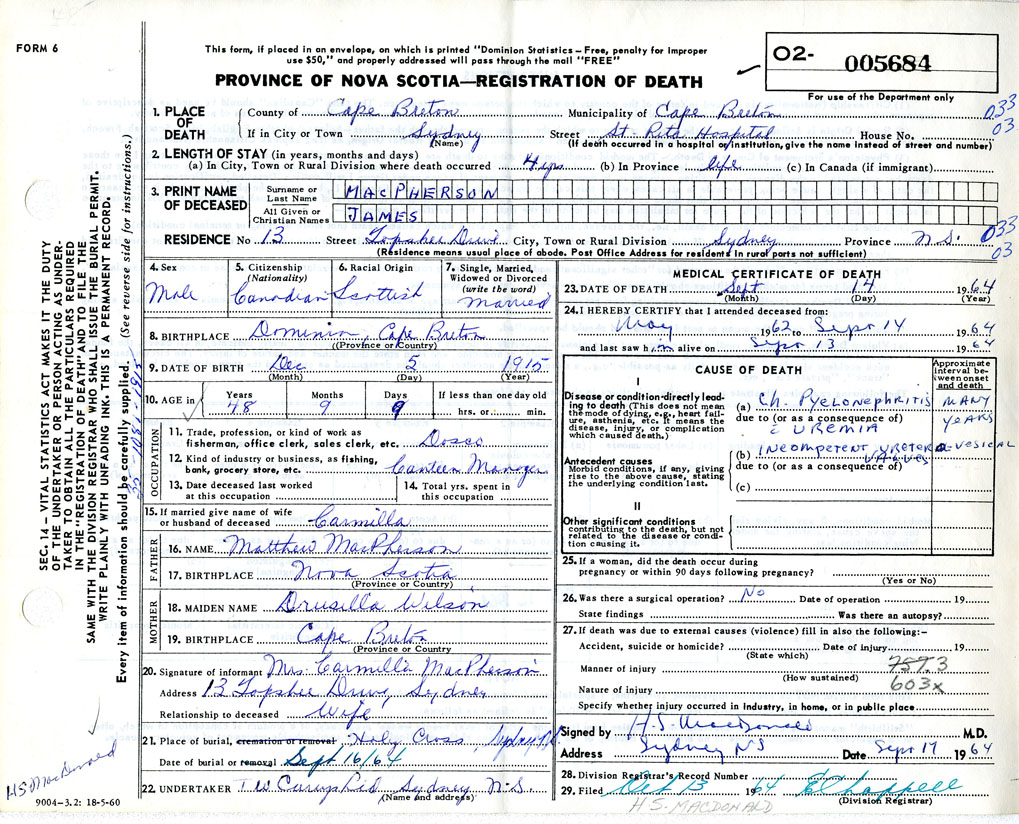 FORM 6
This form, if placed in an envelope, on which is printed "Dominion Statistics – Free, penalty for improper
use $50," and properly addressed will pass through the mail "FREE"
PROVINCE OF NOVA SCOTIA—REGISTRATION OF DEATH
O2- 005684
For use of the Department only
1. PLACE OF DEATH
County of Cape Breton Municipality of Cape Breton 033
If in City or Town Sydney Street St. Rita Hospital House No. 03
(Name) (If death occurred in a hospital or institution, give the name instead of street and number)
2. LENGTH OF STAY (in years, months and days)
(a) In City, Town or Rural Division where death occurred 4 yrs (b) In Province life (c) In Canada (if immigrant)
3. PRINT NAME OF DECEASED
Surname or Last Name MACPHERSON
All Given or Christian Names JAMES
RESIDENCE No 13 Street Topshee Drive City, Town or Rural Division Sydney Province N.S. 033
(Residence means usual place of abode. Post Office Address for residents in rural parts not sufficient) 03
4. Sex
Male
5. Citizenship (Nationality)
Canadian
6. Racial Origin
Scottish
7. Single, Married, Widowed or Divorced (write the word)
married
8. BIRTHPLACE Dominion, Cape Breton
(Province or Country)
9. DATE OF BIRTH Dec 5 1915
(Month) (Day) (Year)
10. AGE in
Years Months Days If less than one day old
48 9 9 hrs. or min.
OCCUPATION
11. Trade, profession, or kind of work as
fisherman, office clerk, sales clerk, etc. Dosco
12. Kind of industry or business, as fishing,
bank, grocery store, etc. Canteen Manager
13. Date deceased last worked
at this occupation
14. Total yrs. spent in
this occupation
15. If married give name of wife
or husband of deceased Carmilla
FATHER
16. NAME Matthew MacPherson
17. BIRTHPLACE Nova Scotia
(Province or Country)
MOTHER
18. MAIDEN NAME Drusilla Wilson
19. BIRTHPLACE Cape Breton
(Province or Country)
20. Signature of informant Mrs. Carmilla MacPherson
Address 13 Topshee Drive, Sydney
Relationship to deceased Wife
21. Place of burial, cremation or removal Holy Cross Sydney
Date of burial or removal Sept 16/64
22. UNDERTAKER Sydney N.S.
(Name and address)
MEDICAL CERTIFICATE OF DEATH
23. DATE OF DEATH Sept 14 1964
(Month) (Day) (Year)
24. I HEREBY CERTIFY that I attended deceased from:
May 1962 to Sept 14 1964
and last saw him alive on Sept 13 1964
CAUSE OF DEATH
Approximate interval between onset and death
I
Disease or condition directly leading to death (This does not mean the mode of dying, e.g., heart failure, asthenia, etc. It means the disease, injury, or complication which caused death.)
(a) Ch. PYELONEPHRITIS MANY YEARS
due to (or as a consequence of)
UREMIA
Antecedent causes
Morbid conditions, if any, giving rise to the above cause, stating the underlying condition last.
(b) INCOMPETENT URETERO-VESICAL VALVES
due to (or as a consequence of)
(c)
II
Other significant conditions
contributing to the death, but not related to the disease or condition causing it.
25. If a woman, did the death occur during
pregnancy or within 90 days following pregnancy?
(Yes or No)
26. Was there a surgical operation? No Date of operation 19
State findings Was there an autopsy?
27. If death was due to external causes (violence) fill in also the following:–
Accident, suicide or homicide? Date of injury 19
(State which)
Manner of injury 757.3
(How sustained)
603x
Nature of injury
Specify whether injury occurred in industry, in home, or in public place
Signed by H.S. MacDonald M.D.
Address Sydney NS Date Sept 17 1964
28. Division Registrar's Record Number
29. Filed Oct 13 1964 E Chappell
(Division Registrar)
H.S. MACDONALD
SEC. 14 – VITAL STATISTICS ACT MAKES IT THE DUTY
OF THE UNDERTAKER OR PERSON ACTING AS UNDER-
TAKER TO OBTAIN ALL THE PARTICULARS REQUIRED
IN THE "REGISTRATION OF DEATH" AND TO FILE THE
SAME WITH THE DIVISION REGISTRAR WHO SHALL ISSUE THE BURIAL PERMIT.
WRITE PLAINLY WITH UNFADING INK. THIS IS A PERMANENT RECORD.
Every item of information should be carefully supplied. (See reverse side for instructions.)
HS MacDonald
9004–3.2: 18-5-60